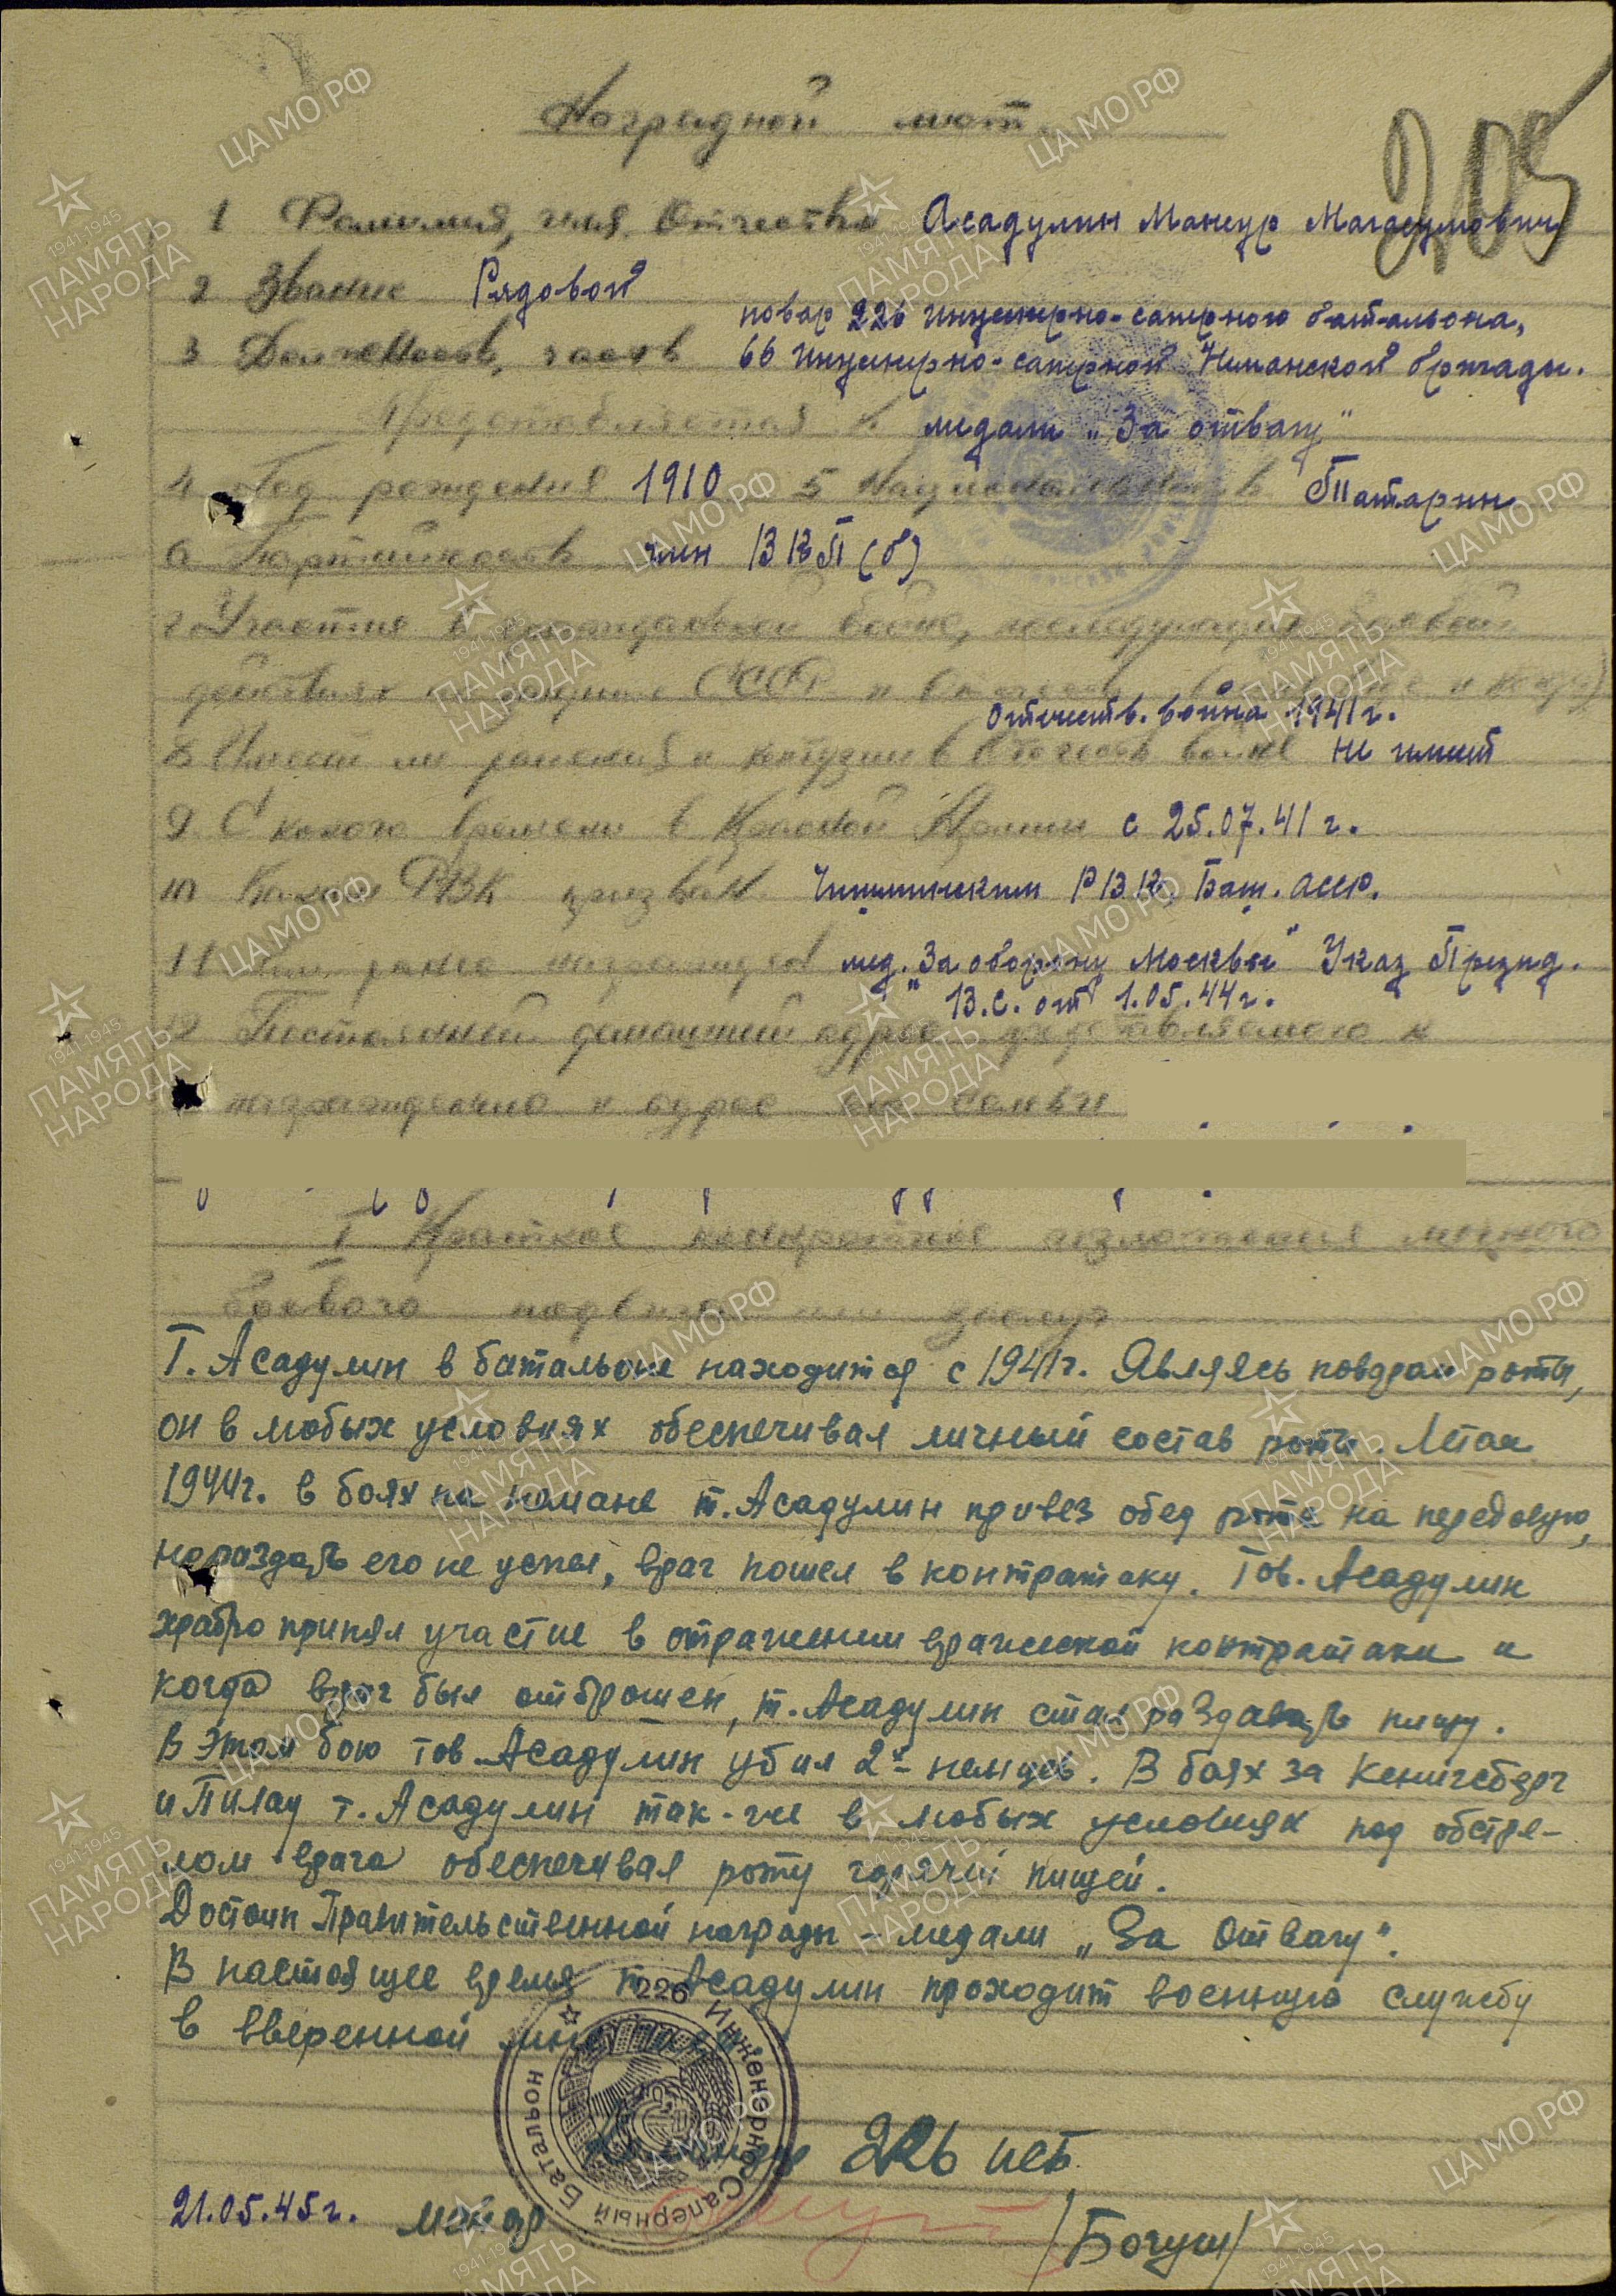 Наградной лист
205
1 Фамилия, имя, Отчество Асадулин Мансур Магасумович
2 Звание Рядовой
повар 226 инженерно-саперного батальона,
3 Должность, часть 66 инженерно-саперной Неманской бригады.
Представляется к медали "За отвагу"
4 Год рождения 1910 5 Национальность Татарин
6 Партийность член ВКП(б)
7 Участие в гражданской войне, последующих боевых
действиях по защите СССР и в отечеств.
Отечеств. война 1941 г.
8 Имеет ли ранения и контузии в Отечеств войне не имеет
9 С какого времени в Красной Армии с 25.07.41 г.
10 Каким РВК призван Чишминским РВК, Баш. АССР.
11 Чем ранее награжден мед. "За оборону Москвы" Указ Презид.
В.С. от 1.05.44 г.
12 Постоянный домашний адрес представляемого к
награждению и адрес его семьи
I Краткое конкретное изложения личного
боевого подвига или заслуг
Т. Асадулин в батальоне находится с 1941 г. Являясь поваром роты,
он в любых условиях обеспечивал личный состав роты. Летом
1944 г. в боях на немане т. Асадулин привез обед роте на передовую,
но раздать его не успел, враг пошел в контратаку. Тов. Асадулин
храбро принял участие в отражении вражеской контратаки и
когда враг был отброшен, т. Асадулин стал раздавать пищу.
В этом бою тов. Асадулин убил 2х немцев. В боях за Кенигсберг
и Пилау т. Асадулин так-же в любых условиях под обстре-
лом врага обеспечивал роту горячей пищей.
Достоин Правительственной награды – медали "За Отвагу".
В настоящее время т. Асадулин проходит военную службу
в вверенной мне части
226 Инженерно Саперный Батальон
Командир 226 исб
21.05.45 г. майор
/Богуш/
ЦА МО РФ
1941-1945
ПАМЯТЬ
НАРОДА